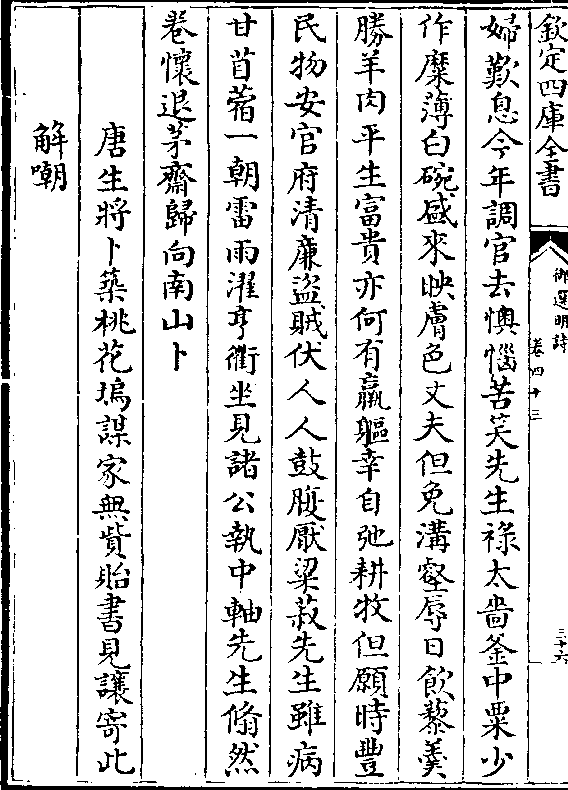 欽定四庫全書
御選明詩
卷四十三
三十六
婦歎息今年調官去懊惱苦笑先生祿太嗇釜中粟少
作糜薄白碗盛來映膚色丈夫但免溝壑辱日飲藜羹
勝羊肉平生富貴亦何有羸軀幸自弛耕牧但願時豐
民物安官府清廉盜賊伏人人鼓腹厭粱菽先生雖病
甘苜蓿一朝雷雨濯亨衢坐見諸公執中軸先生翛然
卷懷退茅齋歸向南山卜
唐生將卜築桃花塢謀家無貲貽書見讓寄此
解嘲